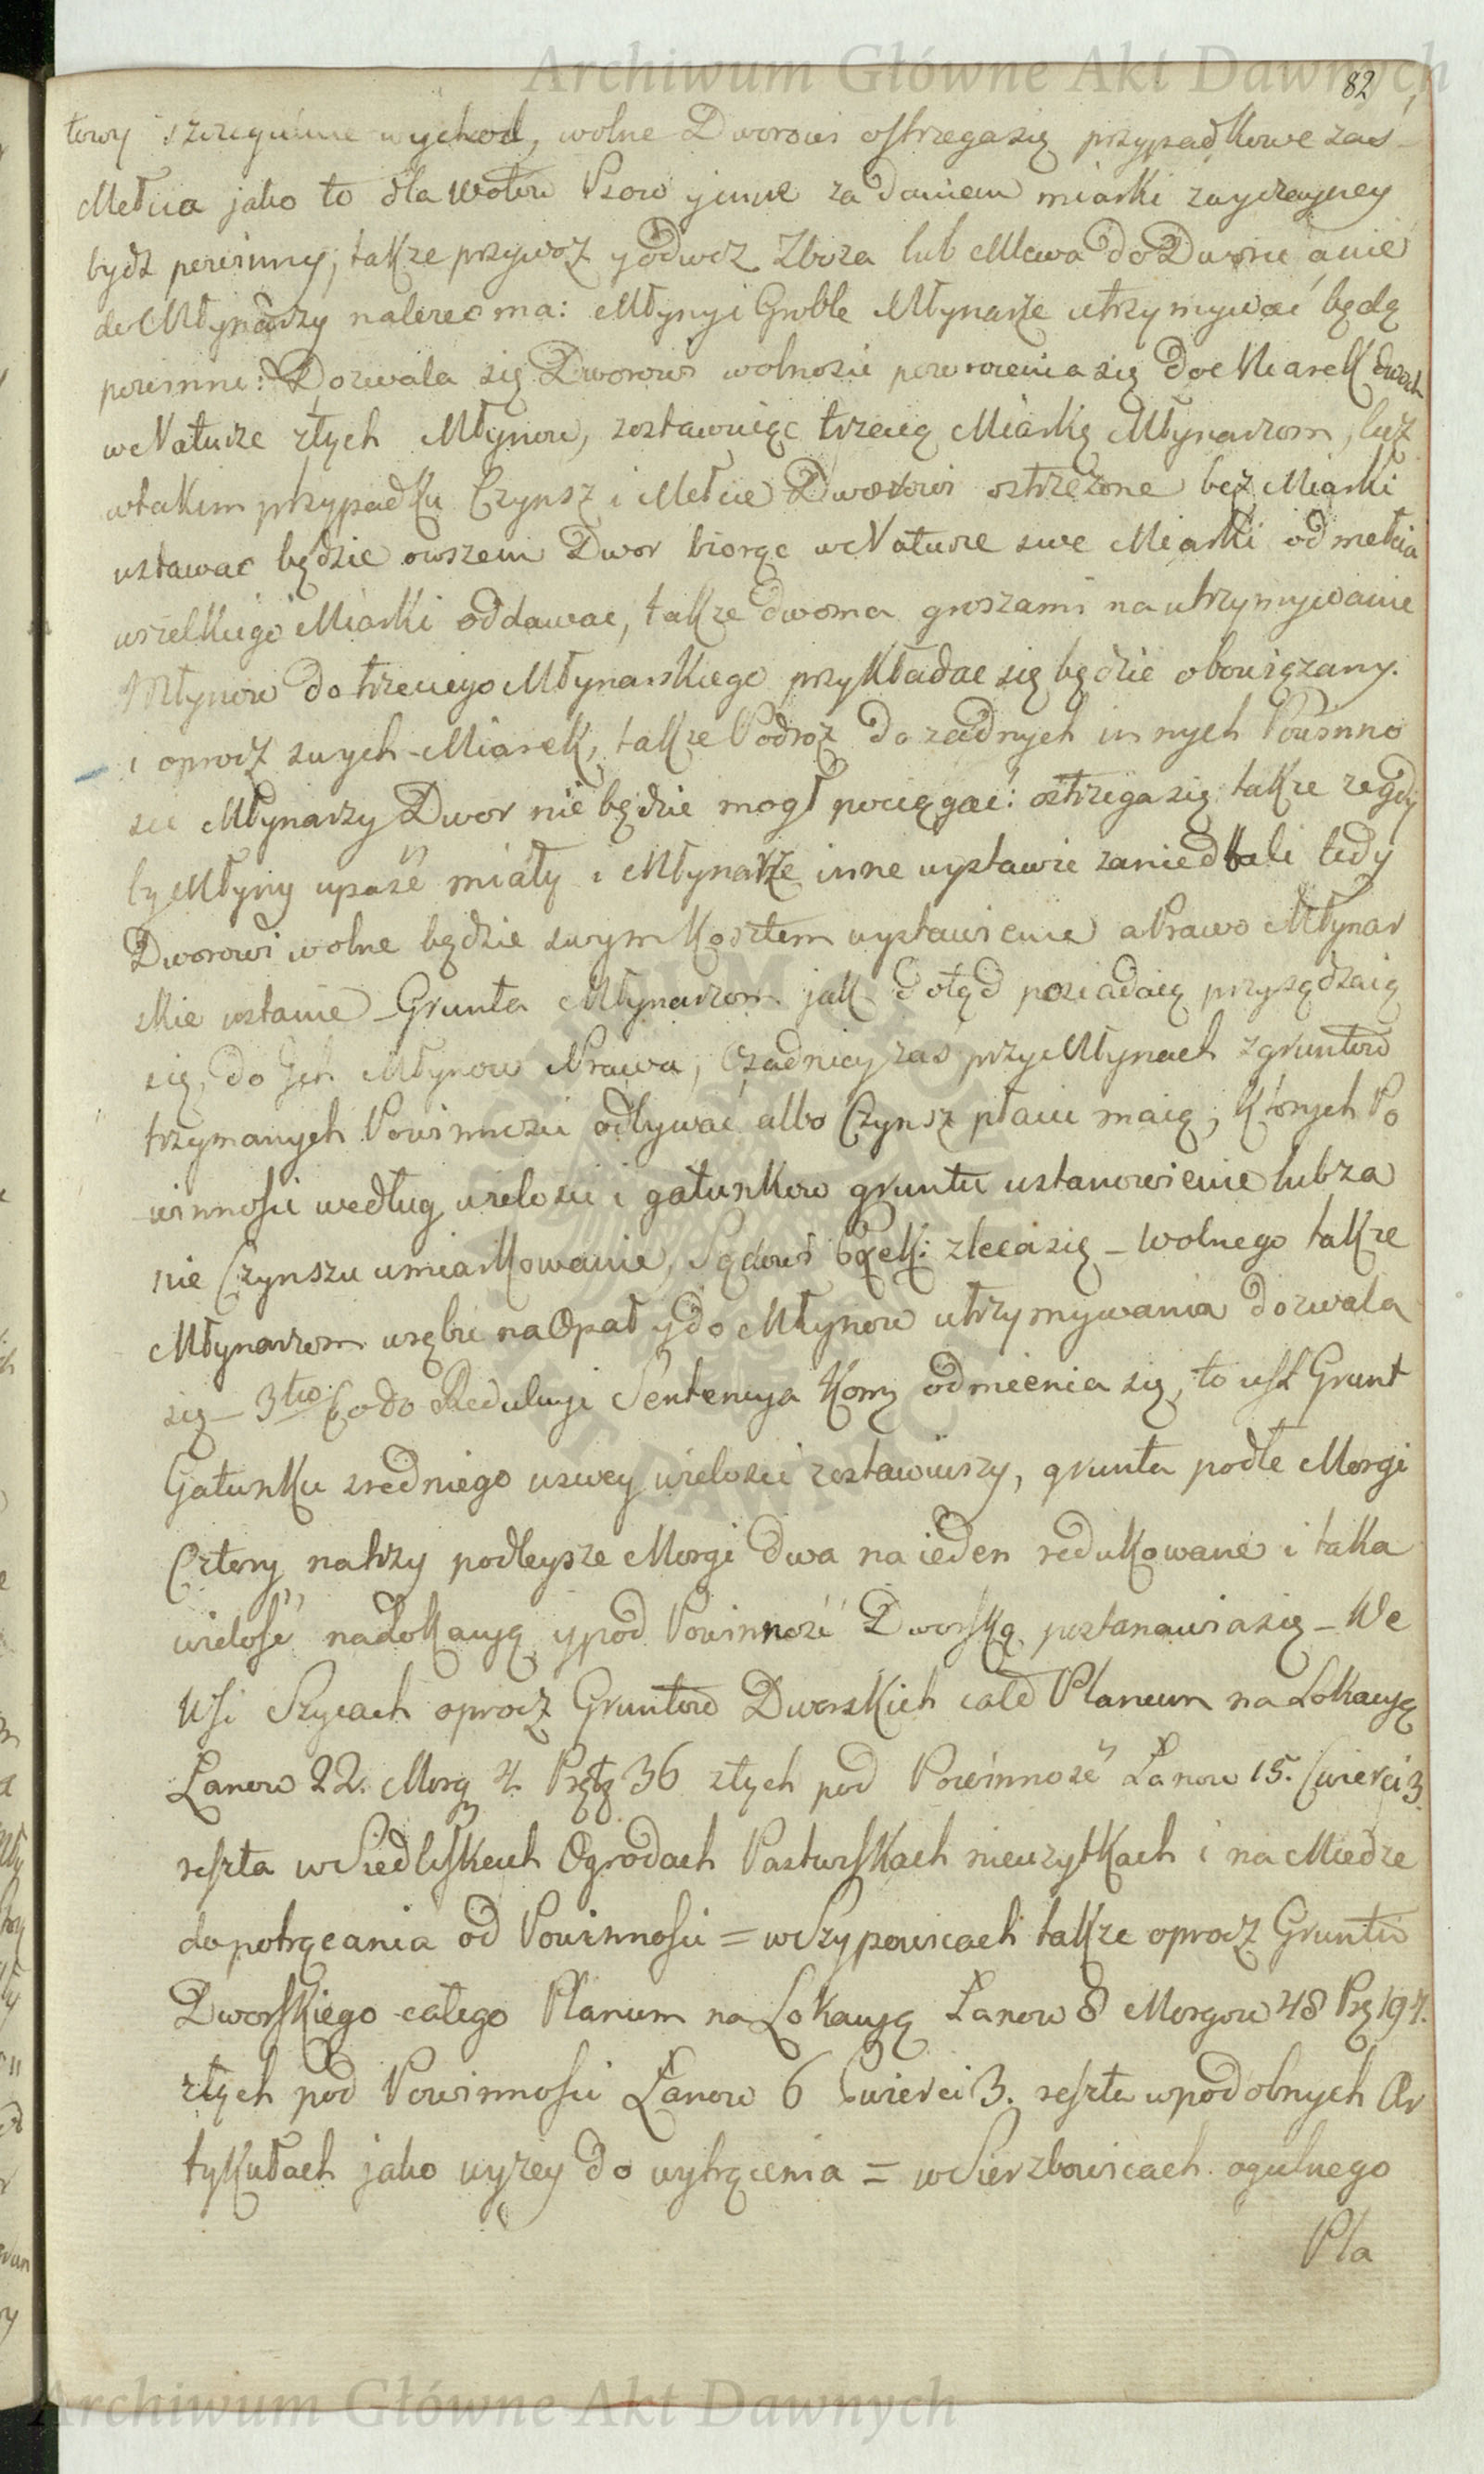 Archiwum Główne Akt Dawnych
82
towy szczegulnie wychod, wolne Dworowi ostrzega się przypadkowe zas
Mełcia jako to dla Wołow Psow y inne za daniem miarki zwyczayney
bydz powinny, takze przywoz y odwoz Zboza lub Mlewa do Dworu a nie
do Młynarzy nalezec ma: Młyny i Groble Młynarze utrzymywać będą
powinni: Dozwala się Dworowi wolnosci powrocenia się do Miarek dwoch
w Naturze z tych Młynow, zostawuiąc trzecią Miarkę Młynarzom, lecz
w takim przypadku Czynsz i Mełcie Dworowi ostrzezone bez Miarki
ustawac będzie owszem Dwor biorąc w Naturze swe Miarki od mełcia
wszelkiego Miarki oddawac, takze dwoma groszami na utrzymywanie
Młynow do trzeciego Młynarskiego przykładac się będzie obowiązany.
i oprocz swych Miarek, takze Podroz do zadnych innych Powinno
sci Młynarzy Dwor nie będzie mogł pociągać: ostrzega się takze ze gdy
by Młyny upaść miały i Młynarze inne wystawic zaniedbali tedy
Dworowi wolne będzie swym Kosztem wystawienie a Prawo Młynar
skie ustanie Grunta Młynarzom jak dotąd posiadaią przysądzaią
się do Ich Młynow Prawa, Osadnicy zas przy Młynach z gruntow
trzymanych Powinnosci odbywać albo Czynsz płacic maią, ktorych Po
winnosci według wielosci i gatunkow gruntu ustanowienie lub za
nie Czynszu umiarkowanie, Sądowi zleca się _ Wolnego takze
Młynarzom wrębu na Opał y do Młynow utrzymywania dozwala
się _ 3tio Co do Redukcyi Sentencya Kom. odmienia się, to iest Grunt
Gatunku sredniego w swey wielosci zostawiwszy, grunta podłe Morgi
Cztery na trzy podleysze Morgi dwa na ieden redukowane i taka
wielość na Lokacyą y pod Powinność Dworską postanawia się _ We
Wsi Szycach oprocz Gruntow Dworskich całe Planum na Lokacyą
Łanow 22. Morg 4. Pręt 36 z tych pod Powinność Łanow 15. Cwierci 3.
reszta w Siedliskach Ogrodach Pastwiskach nieuzytkach i na Miedze
do potrącania od Powinnosci = w Szypowicach takze oprocz Gruntu
Dworskiego całego Planum na Lokacyą Łanow 8 Morgow 48 Prę 194.
z tych pod Powinnosci Łanow 6 Cwierci 3. reszta w podobnych Ar
tykułach jako wyzey do wytrącenia = w Sierzbowicach ogulnego
Pla
Archiwum Główne Akt Dawnych